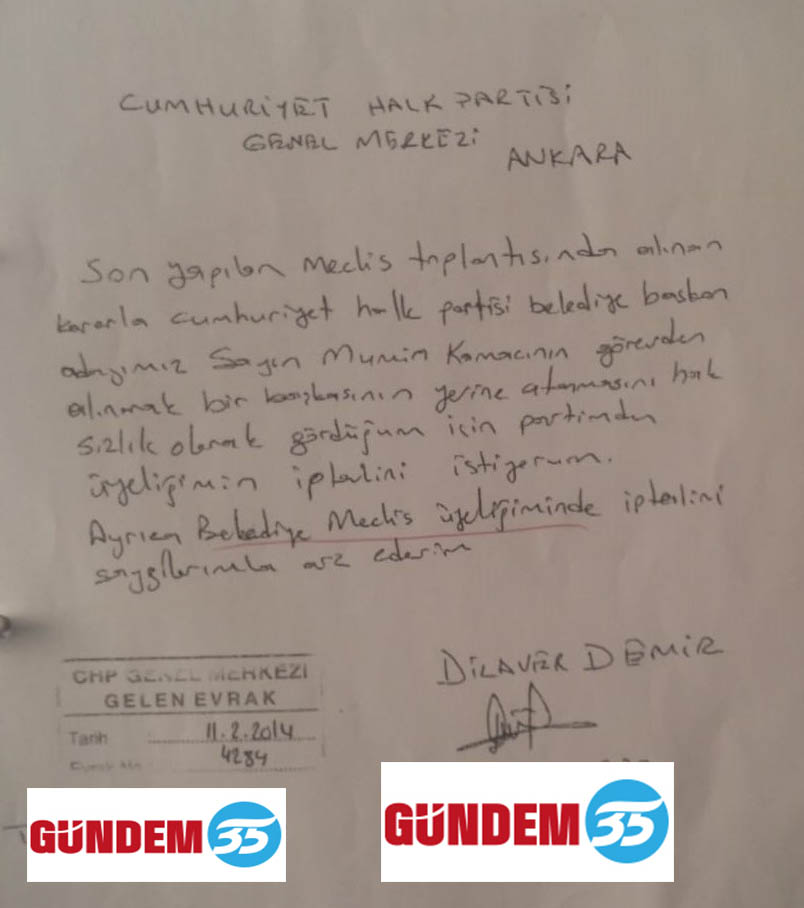 CUMHURİYET HALK PARTİSİ
GENEL MERKEZİ
ANKARA
Son yapılan Meclis toplantısında alınan
kararla cumhuriyet halk partisi belediye başkan
adayımız Sayın Mümin Kamacının görevden
alınarak bir başkasının yerine atanmasını hak
sızlık olarak gördüğüm için partimden
üyeliğimin iptalini istiyorum.
Ayrıca Belediye Meclis üyeliğiminde iptalini
saygılarımla arz ederim
DİLAVER DEMİR
CHP GENEL MERKEZİ
GELEN EVRAK
Tarih 11.2.2014
4284
GÜNDEM 35
GÜNDEM 35